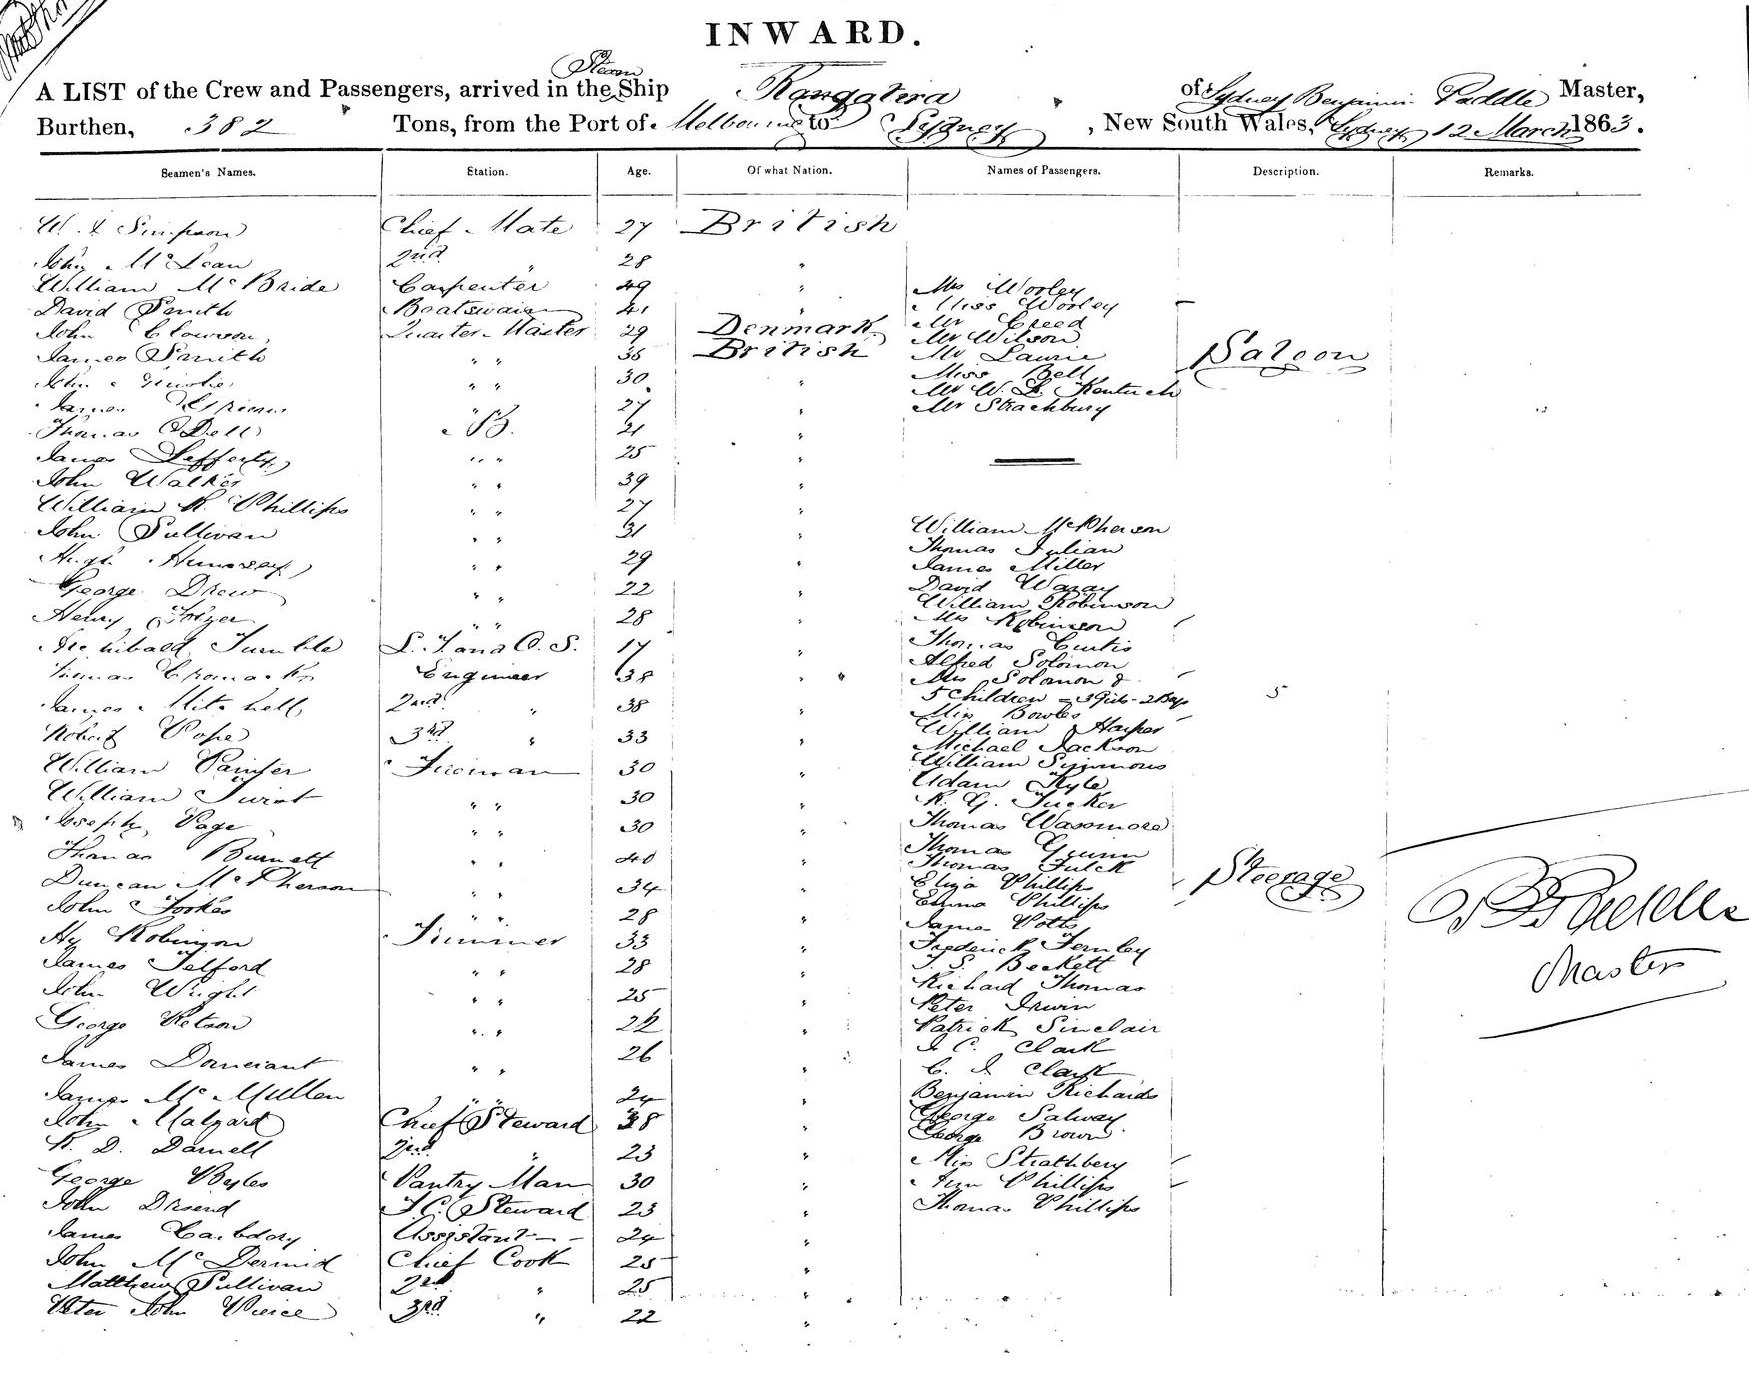 INWARD.
A LIST of the Crew and Passengers, arrived in the Steam Ship Rangatira of Sydney Benjamin Paddle Master,
Burthen, 382 Tons, from the Port of Melbourne to Sydney, New South Wales, Sydney 12 March 1863.
Seamen's Names. Station. Age. Of what Nation. Names of Passengers. Description. Remarks.
Simpson Chief Mate 27 British
John McLean 2nd " 28 "
William McBride Carpenter 49 " Mrs Worley
David Smith Boatswain 41 " Miss Worley
John Clowson Quarter Master 29 Denmark Mr Creed
Mr Wilson
James Smith " " 35 British Mr Laurie Saloon
John " " 30 " Miss Bell
Mr W.
James " " 27 " Mr Strachbury
Thomas O'Dell AB. 21 "
James Lafferty " " 25 "
John Walker " " 39 "
William R. Phillips " " 27 "
John Sullivan " " 31 " William McPherson
Thomas Julian
Hugh " " 29 " James Miller
George Drew " " 22 " David
William Robinson
Henry " " 28 " Mrs Robinson
Archibald Turnble L. T. and O.S. 17 " Thomas Curtis
Alfred Solomon
Thomas Engineer 38 " Mrs Solomon &
5 Children = 3 Girls - 2 Boys 5
James Mitchell 2nd " 38 " Miss Bowles
William Harper
Robert Pope 3rd " 33 " Michael Jackson
William Painter Fireman 30 " William Symmons
Adam Kyle
William Twist " " 30 " R. G. Tucker
Joseph Page " " 30 " Thomas Wassmore
Thomas Burnett " " 40 " Thomas
Thomas Fulck
Duncan McPherson " " 34 " Eliza Phillips Steerage
Emma Phillips
John Fookes " " 28 " James Potts
Hy Robinson Trimmer 33 " Frederick Fernley
James Telford " " 28 " T. S. Beckett
John Wright " " 25 " Richard Thomas
Peter Irwin
George Retson " " 22 " Patrick Sinclair
J C. Clark
James " " 26 " C. J. Clark
James McMullen " " 24 " Benjamin Richards
John Malyard Chief Steward 38 " George Salway
George Brown
R. D. Darnell 2nd " 23 " Miss Strathbery
George Byles Pantry Man 30 " Ann Phillips
John F.C. Steward 23 " Thomas Phillips
James Assistant 24 "
John McDermid Chief Cook 25 "
Matthew Sullivan 2nd " 25 "
Peter John Pierce 3rd " 22 "
B Paddle
Master